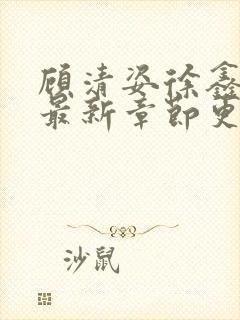 顾清姿徐鑫
最新章节更
沙鼠